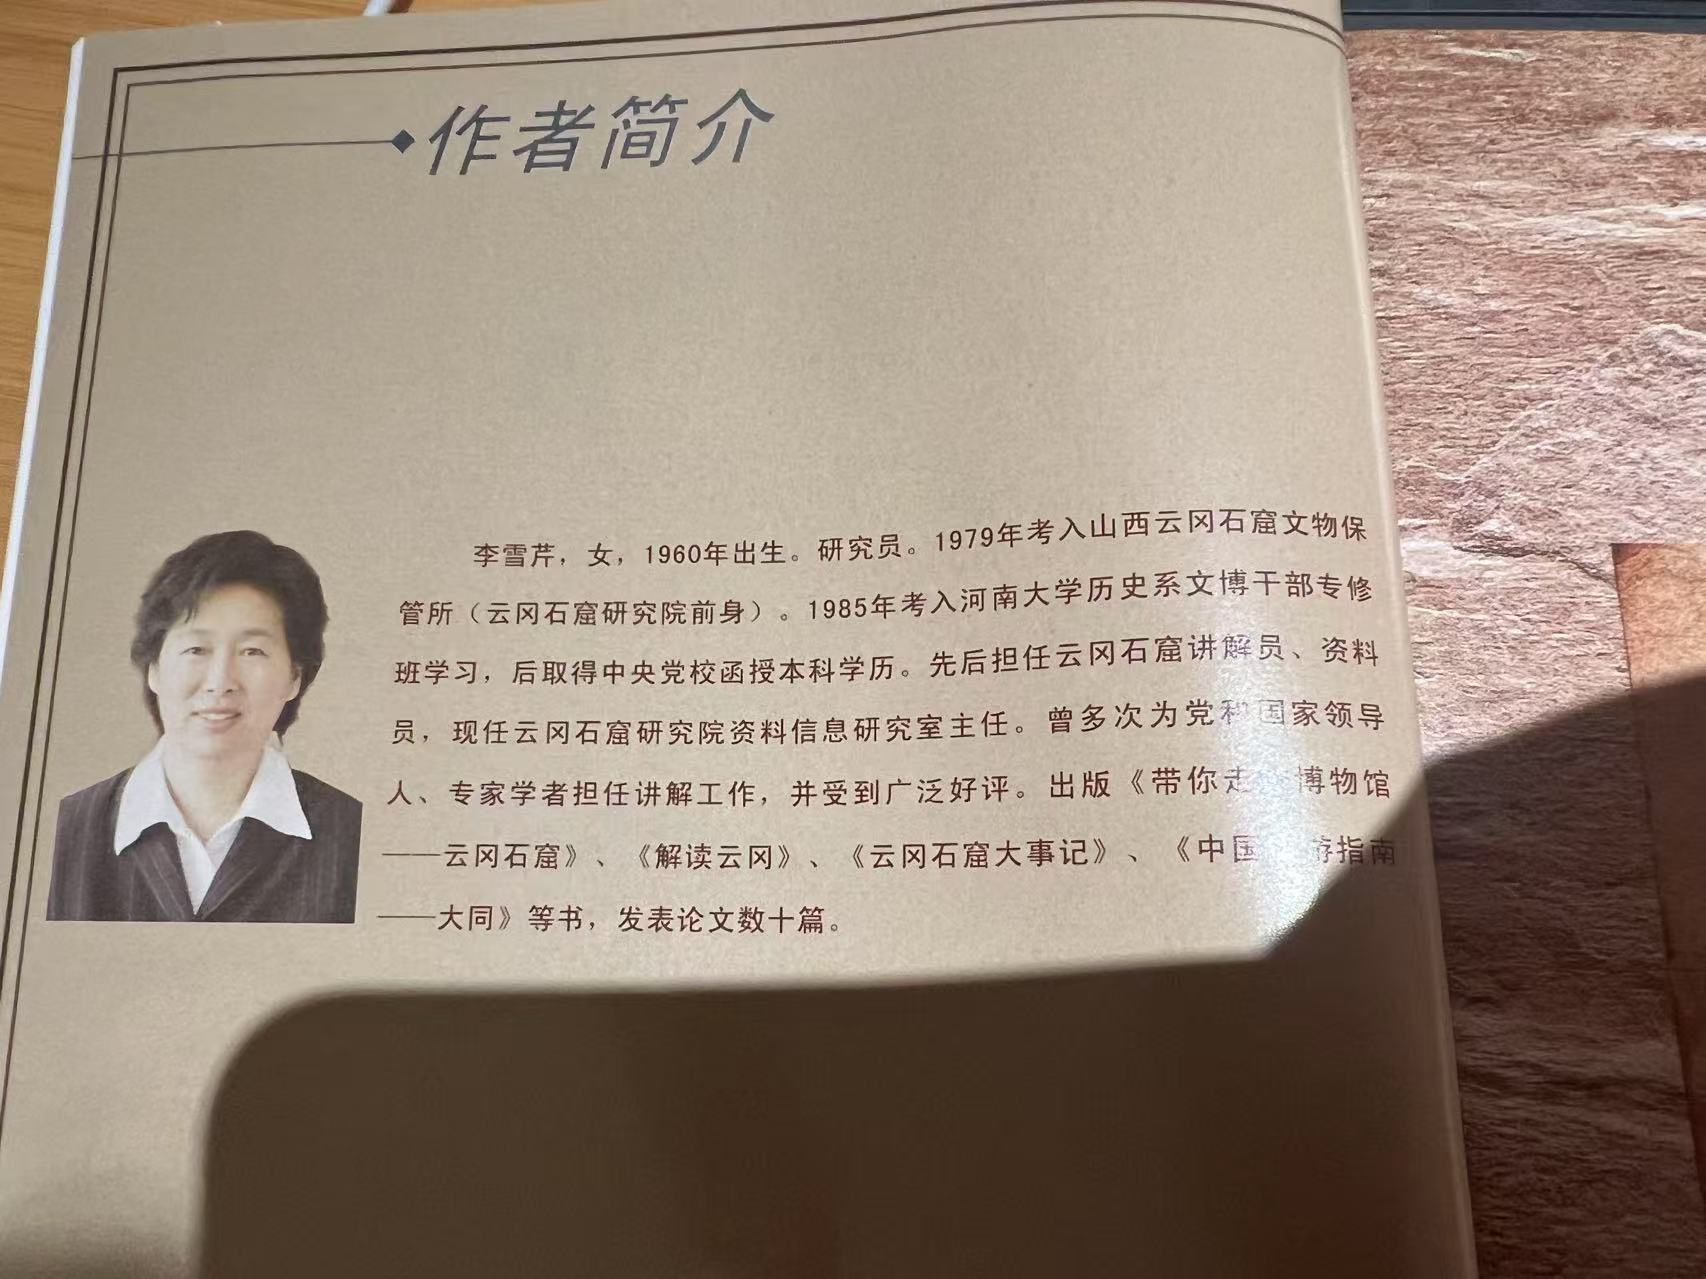 作者简介
李雪芹，女，1960年出生。研究员。1979年考入山西云冈石窟文物保
管所（云冈石窟研究院前身）。1985年考入河南大学历史系文博干部专修
班学习，后取得中央党校函授本科学历。先后担任云冈石窟讲解员、资料
员，现任云冈石窟研究院资料信息研究室主任。曾多次为党和国家领导
人、专家学者担任讲解工作，并受到广泛好评。出版《带你走 博物馆
——云冈石窟》、《解读云冈》、《云冈石窟大事记》、《中国 游指南
——大同》等书，发表论文数十篇。